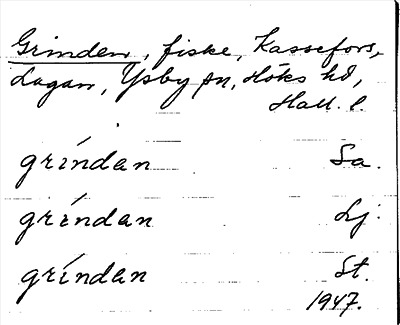 Grinden, fiske, Kassefors,
Lagan, Ysby sn, Höks hd,
Hall. l.
gríndan Sa.
gríndan Lj.
gríndan St.
1947.